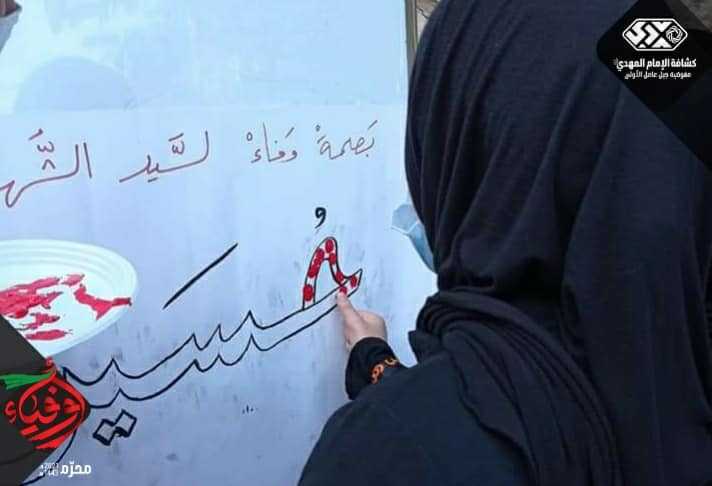 كشافة الإمام المهدي
مفوضية جبل عامل الأولى
بَصمة وَفاءْ لسَّيد الشُّه
حُسَين
أوفياء
محرّم